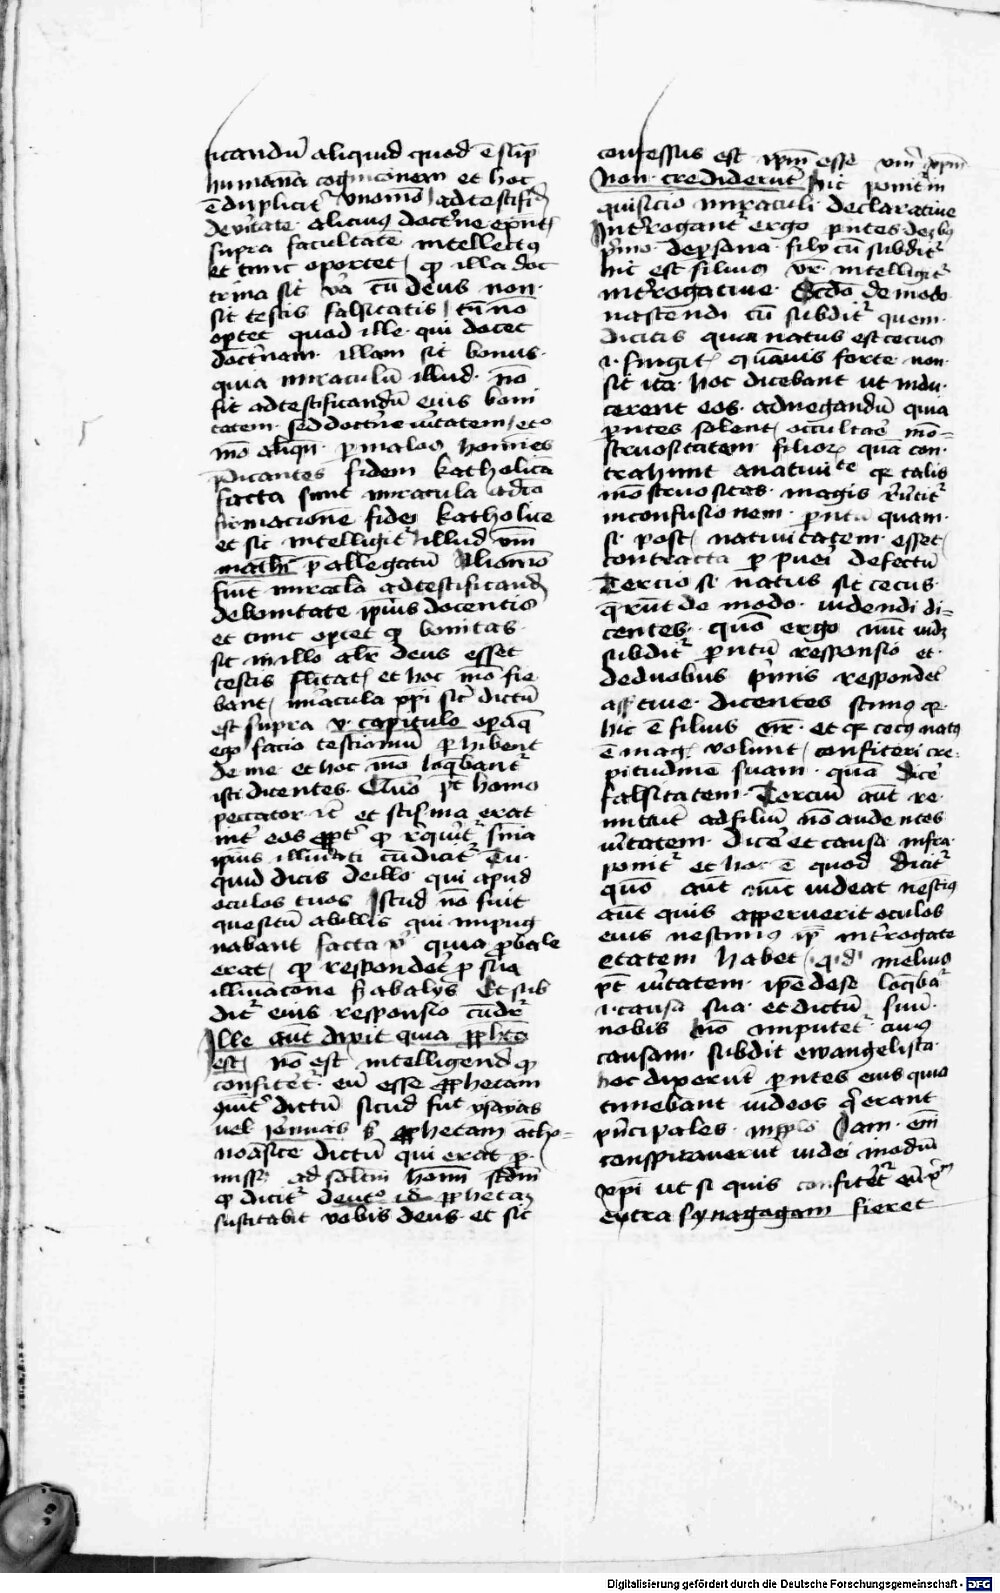 ficandū aliquid quod ē sup̄
humanā cognicōnem et hoc
ē dupliciter uno mō ad testificād
de vtate alicuius doctrīne exn̄t
supra facultatē intellectus
et tunc oportet qꝫ illa doc
trina sit va cū deus non
sit testis falsitatis tn̄ nō
oportet quod ille qui docet
doctrnam illam sit bonus
quia miraculū illud nō
fit ad testificandū eius boni
tatem sed doctrīne vtatem et
mō aliqn̄ p malos homines
pdicantes fidem katholicā
facta sunt miracula ad
firmacionē fidei katholice
et sic intelligitr illud
math p allegatum Alio mō
fiunt miracla ad testificand
de bonitate ipsius docentis
et tunc oportet qꝫ bonitas
sit in illo alr deus esset
testis flitatis et hoc mō fie
bant miracula xpi sic dictū
est supra v capitulo opa q̄
ego facio testimoniū phibent
de me et hoc mō loqbantr
isti dicentes Quō pt homo
peccator et scisma erat
int eos ppt qꝫ requirit snīa
ipsius illuminati cū dicit Tu
quid dicis de illo qui apuit
oculos tuos Istud nō fuit
quesitū ab illis qui impug
nabant facta quia pbale
erat qꝫ respondet p sua
illuminacōne ab alijs Et sub
ditr eius responsio cū dr
Ille aut dixit quia ppheta
est nō est intelligend qꝫ
confitet eū esse pphetam
dictū sicud fuit ysayas
uel ieremias pphetam
dictum qui erat p
missus ad salutem homi
qꝫ dicitr deut pphetam
suscitabit vobis deus et sic
confessus est ipm esse
Non crediderunt hic ponitr in
quisicio miraculi declaratiue
Introgantr ergo pntes
pmo de psona filij cū subditr
hic est filius vr intelligitr
introgatiue Scdo de modo
nascendi cū subditr quem
dicitis quia natus est cecus
i fingitis quāuis forte non
sit ita hoc dicebant ut indu
cerent eos ad negandū quia
pntes solent occultare mō
struositatem filiorꝫ quā con
trahunt a natiuite qꝫ talis
mōstruositas magis
in confusionem pntū quam
si post natiuitatem esset
contracta p pueri defectū
Tercio si natus sit cecus
qrunt de modo videndi di
centes quō ergo nūc videt
subditr pntū responsio et
de duobus pmis respondent
assertiue dicentes scimus qꝫ
hic ē filius nr et qꝫ cecus natus
ē volunt confiteri tre
pitudinē suam quā dicē
falsitatem Terciū aut re
mittūt ad filiū nō audentes
vtatem dicē et causa infra
ponitr et hoc ē quod dicitr
quō aut nūc videat nescimus
aut quis apperuerit oculos
eius nescimus ip introgate
etatem habet q d melius
pt vtatem ipe de se loqbatr
i causa sua et dictū suū
nobis nō imputet cuius
causam subdit ewangelista
hoc dixerunt pntes eius quia
timebant iudeos q erant
pncipales in pplo Iam eni
conspirauerut iudei in odiū
xpi ut si quis confiteret eū
extra synagogam fieret
Digitalisierung gefördert durch die Deutsche Forschungsgemeinschaft - DFG